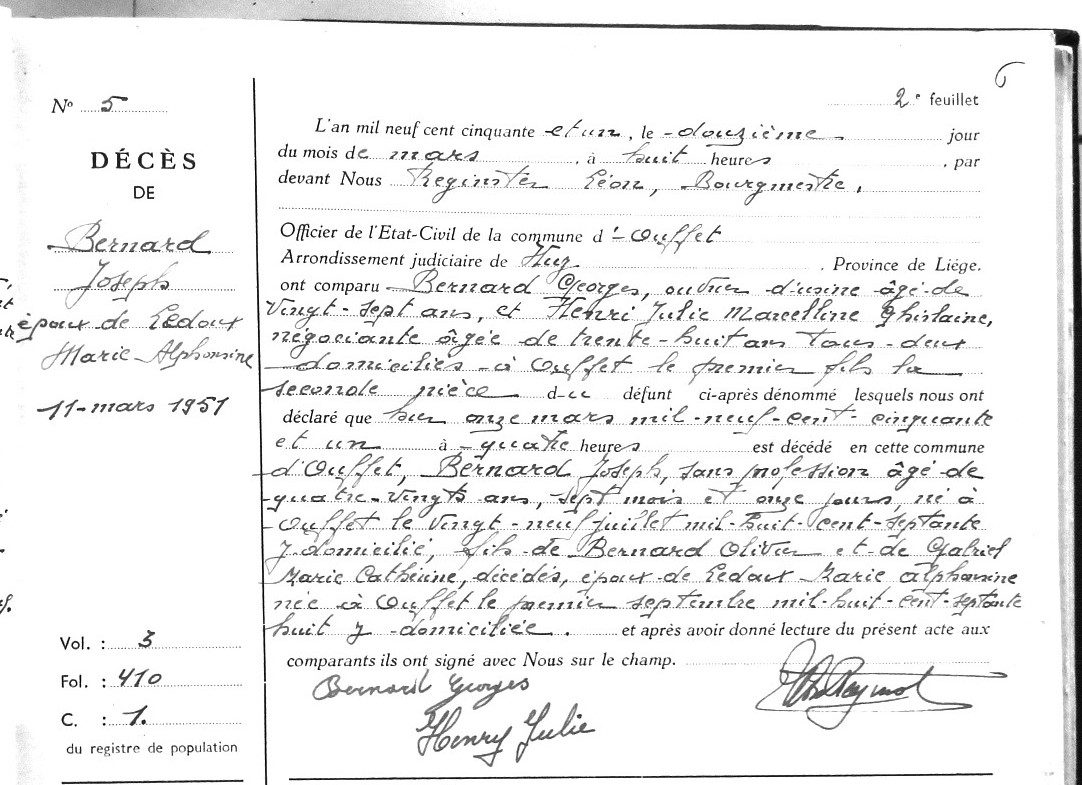 6
2e feuillet
N° 5
DÉCÈS
DE
Bernard
Joseph
époux de Ledoux
Marie Alphonsine
11-mars 1951
Vol. : 3
Fol. : 410
C. : 1.
du registre de population
L'an mil neuf cent cinquante et un, le douzième jour
du mois de mars, à huit heures, par
devant Nous Reginster Léon, Bourgmestre,
Officier de l'Etat-Civil de la commune d'Ouffet
Arrondissement judiciaire de Huy, Province de Liège.
ont comparu Bernard Georges, ouvrier d'usine âgé de
Vingt-sept ans, et Henri Julie Marcelline Ghislaine,
négociante âgée de trente-huit ans tous deux
domiciliés à Ouffet le premier fils la
seconde nièce du défunt ci-après dénommé lesquels nous ont
déclaré que hier onze mars mil-neuf-cent-cinquante
et un à quatre heures est décédé en cette commune
d'Ouffet, Bernard Joseph, sans profession âgé de
quatre-vingts ans, sept mois et onze jours, né à
Ouffet le vingt-neuf juillet mil-huit-cent-septante
y domicilié, fils de Bernard Olivier et de Gabriel
Marie Catherine, décédés, époux de Ledoux Marie Alphonsine
née à Ouffet le premier septembre mil-huit-cent-septante
huit y domiciliée. et après avoir donné lecture du présent acte aux
comparants ils ont signé avec Nous sur le champ.
Bernard Georges
Henry Julie